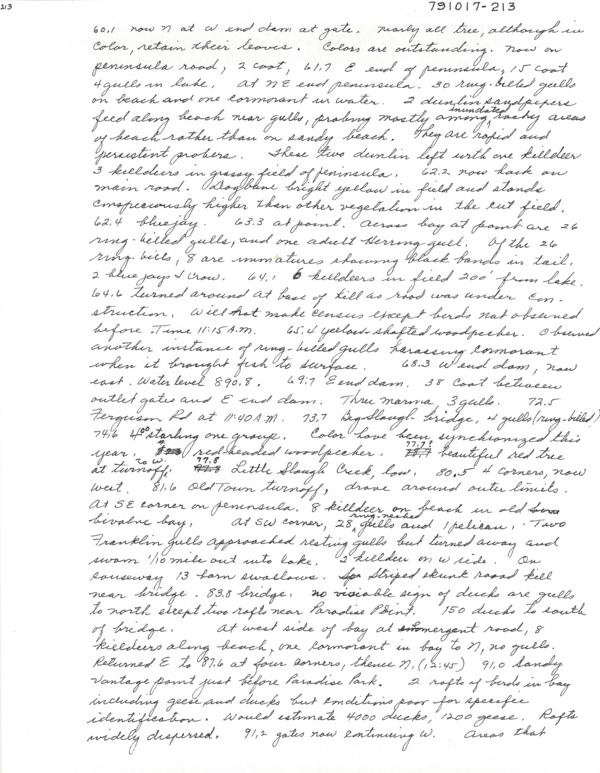 213
791017-213
60.1 now N at W end dam at gate. Nearly all tree, although in
color, retain their leaves. Colors are outstanding. Now on
peninsula road, 2 coot, 61.7 E end of peninsula, 15 coot
4 gulls in lake. At NE end peninsula. 30 ring-billed gulls
on beach and one cormorant in water. 2 dunlin sandpipers
feed along beach near gulls, probing mostly among inundated rocky areas
of beach rather than on sandy beach. They are rapid and
persistent probers. These two dunlin left with one killdeer
3 killdeers in grassy field of peninsula. 62.2 now back on
main road. Dogbane bright yellow in field and stands
conspicuously higher than other vegetation in the cut field.
62.4 bluejay. 63.3 at point. Across bay at point are 26
ring-billed gulls, and one adult Herring gull. Of the 26
ring-bills, 8 are immatures showing black bands in tail.
2 blue jays 2 crow. 64.1 6 killdeers in field 200' from lake.
64.6 turned around at base of hill as road was under con-
struction. Will not make census except birds not observed
before. Time 11:15 A.M. 65.4 yellow-shafted woodpecker. Observed
another instance of ring-billed gulls harassing cormorant
when it brought fish to surface. 68.3 W end dam, now
east. Water level 890.8. 69.7 E end dam. 38 coot between
outlet gates and E end dam. Thru marina, 3 gulls. 72.5
Ferguson Rd at 11:40 A.M. 73.7 Big Slough bridge, 4 gulls (ring-billed)
74.6 40 starling one group. Color have been synchronized this
year. red headed woodpecker. 77.7? beautiful red tree
at turnoff to W. 77.8 Little Slough Creek, low. 80.5 4 corners, now
west. 81.6 Old Town turnoff, drove around outer limits.
At SE corner on peninsula. 8 killdeer on beach in old
bivalve bay. At SW corner, 28 ring-necked gulls and 1 pelican. Two
Franklin gulls approached resting gulls but turned away and
swam 1/10 mile out into lake. 2 killdeer on W side. On
causeway 13 barn swallows. Striped skunk road kill
near bridge. 83.8 bridge. no visible sign of ducks are gulls
to north except two rafts near Paradise Point. 150 ducks to south
of bridge. At west side of bay at submergent road, 8
killdeers along beach, one cormorant in bay to N, no gulls.
Returned E to 87.6 at four corners, thence N. (12:45) 91.0 Sandy
vantage point just before Paradise Park. 2 rafts of birds in bay
including geese and ducks but conditions poor for specific
identification. Would estimate 4000 ducks, 1200 geese. Rafts
widely dispersed. 91.2 gates now continuing W. Areas that